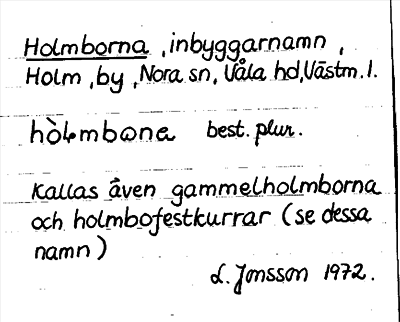 Holmborna, inbyggarnamn,
Holm, by, Nora sn, Våla hd, Västm. l.
hòLmbona best. plur.
Kallas även gammelholmborna
och holmbofestkurrar (se dessa
namn)
L. Jonsson 1972.